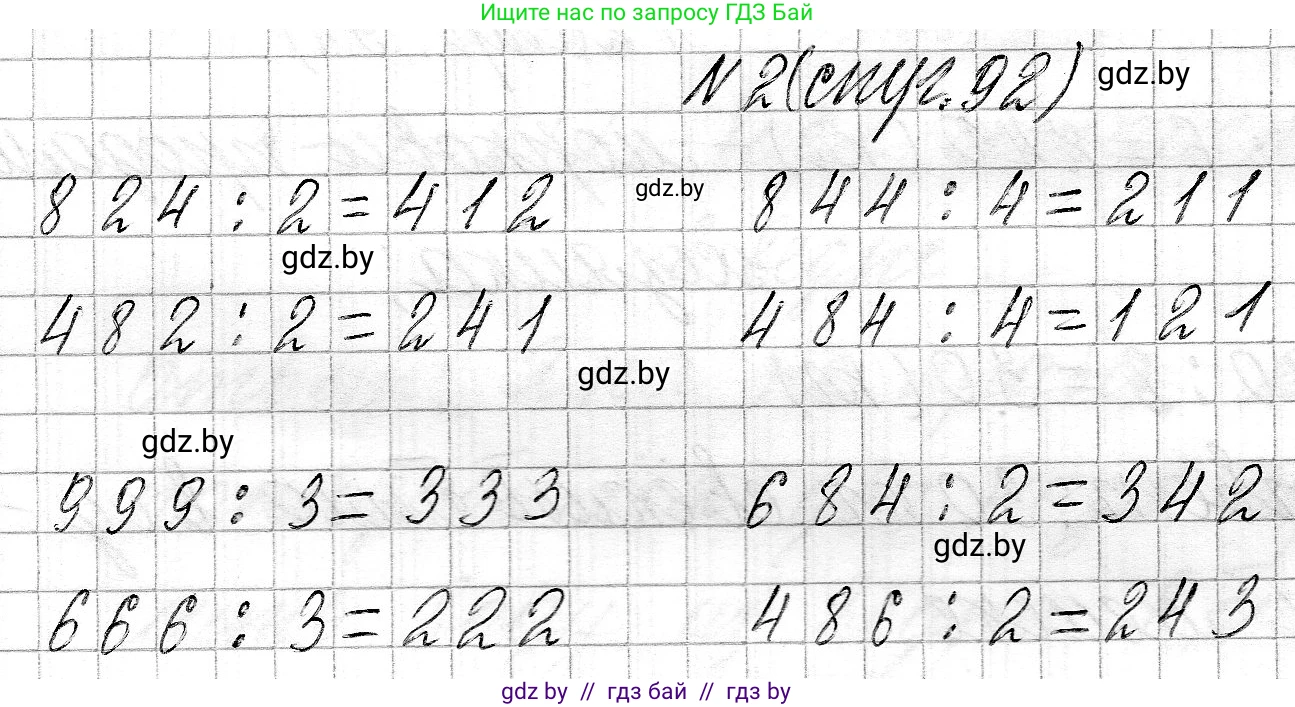 Ищите нас по запросу ГДЗ Бай
№ 2 (стр. 92) gdz.by
824 : 2 = 412 gdz.by 844 : 4 = 211
gdz.by
482 : 2 = 241 484 : 4 = 121
gdz.by
gdz.by
999 : 3 = 333 684 : 2 = 342
gdz.by
666 : 3 = 222 486 : 2 = 243
gdz by // гдз бай // гдз by